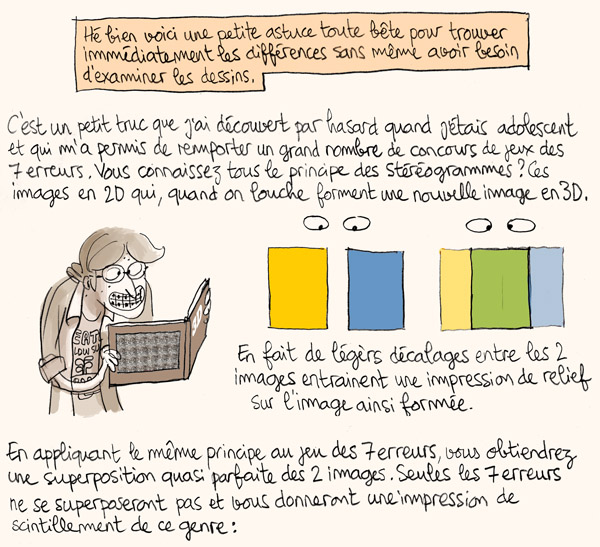 Hé bien voici une petite astuce toute bête pour trouver
immédiatement les différences sans même avoir besoin
d'examiner les dessins.
C'est un petit truc que j'ai découvert par hasard quand j'étais adolescent
et qui m'a permis de remporter un grand nombre de concours de jeux des
7 erreurs. Vous connaissez tous le principe des Stéréogrammes ? Ces
images en 2D qui, quand on louche forment une nouvelle image en 3D.
En fait de légèrs décalages entre les 2
images entrainent une impression de relief
sur l'image ainsi formée.
En appliquant le même principe au jeu des 7 erreurs, vous obtiendrez
une superposition quasi parfaite des 2 images. Seules les 7 erreurs
ne se superposeront pas et vous donneront une impression de
scintillement de ce genre :